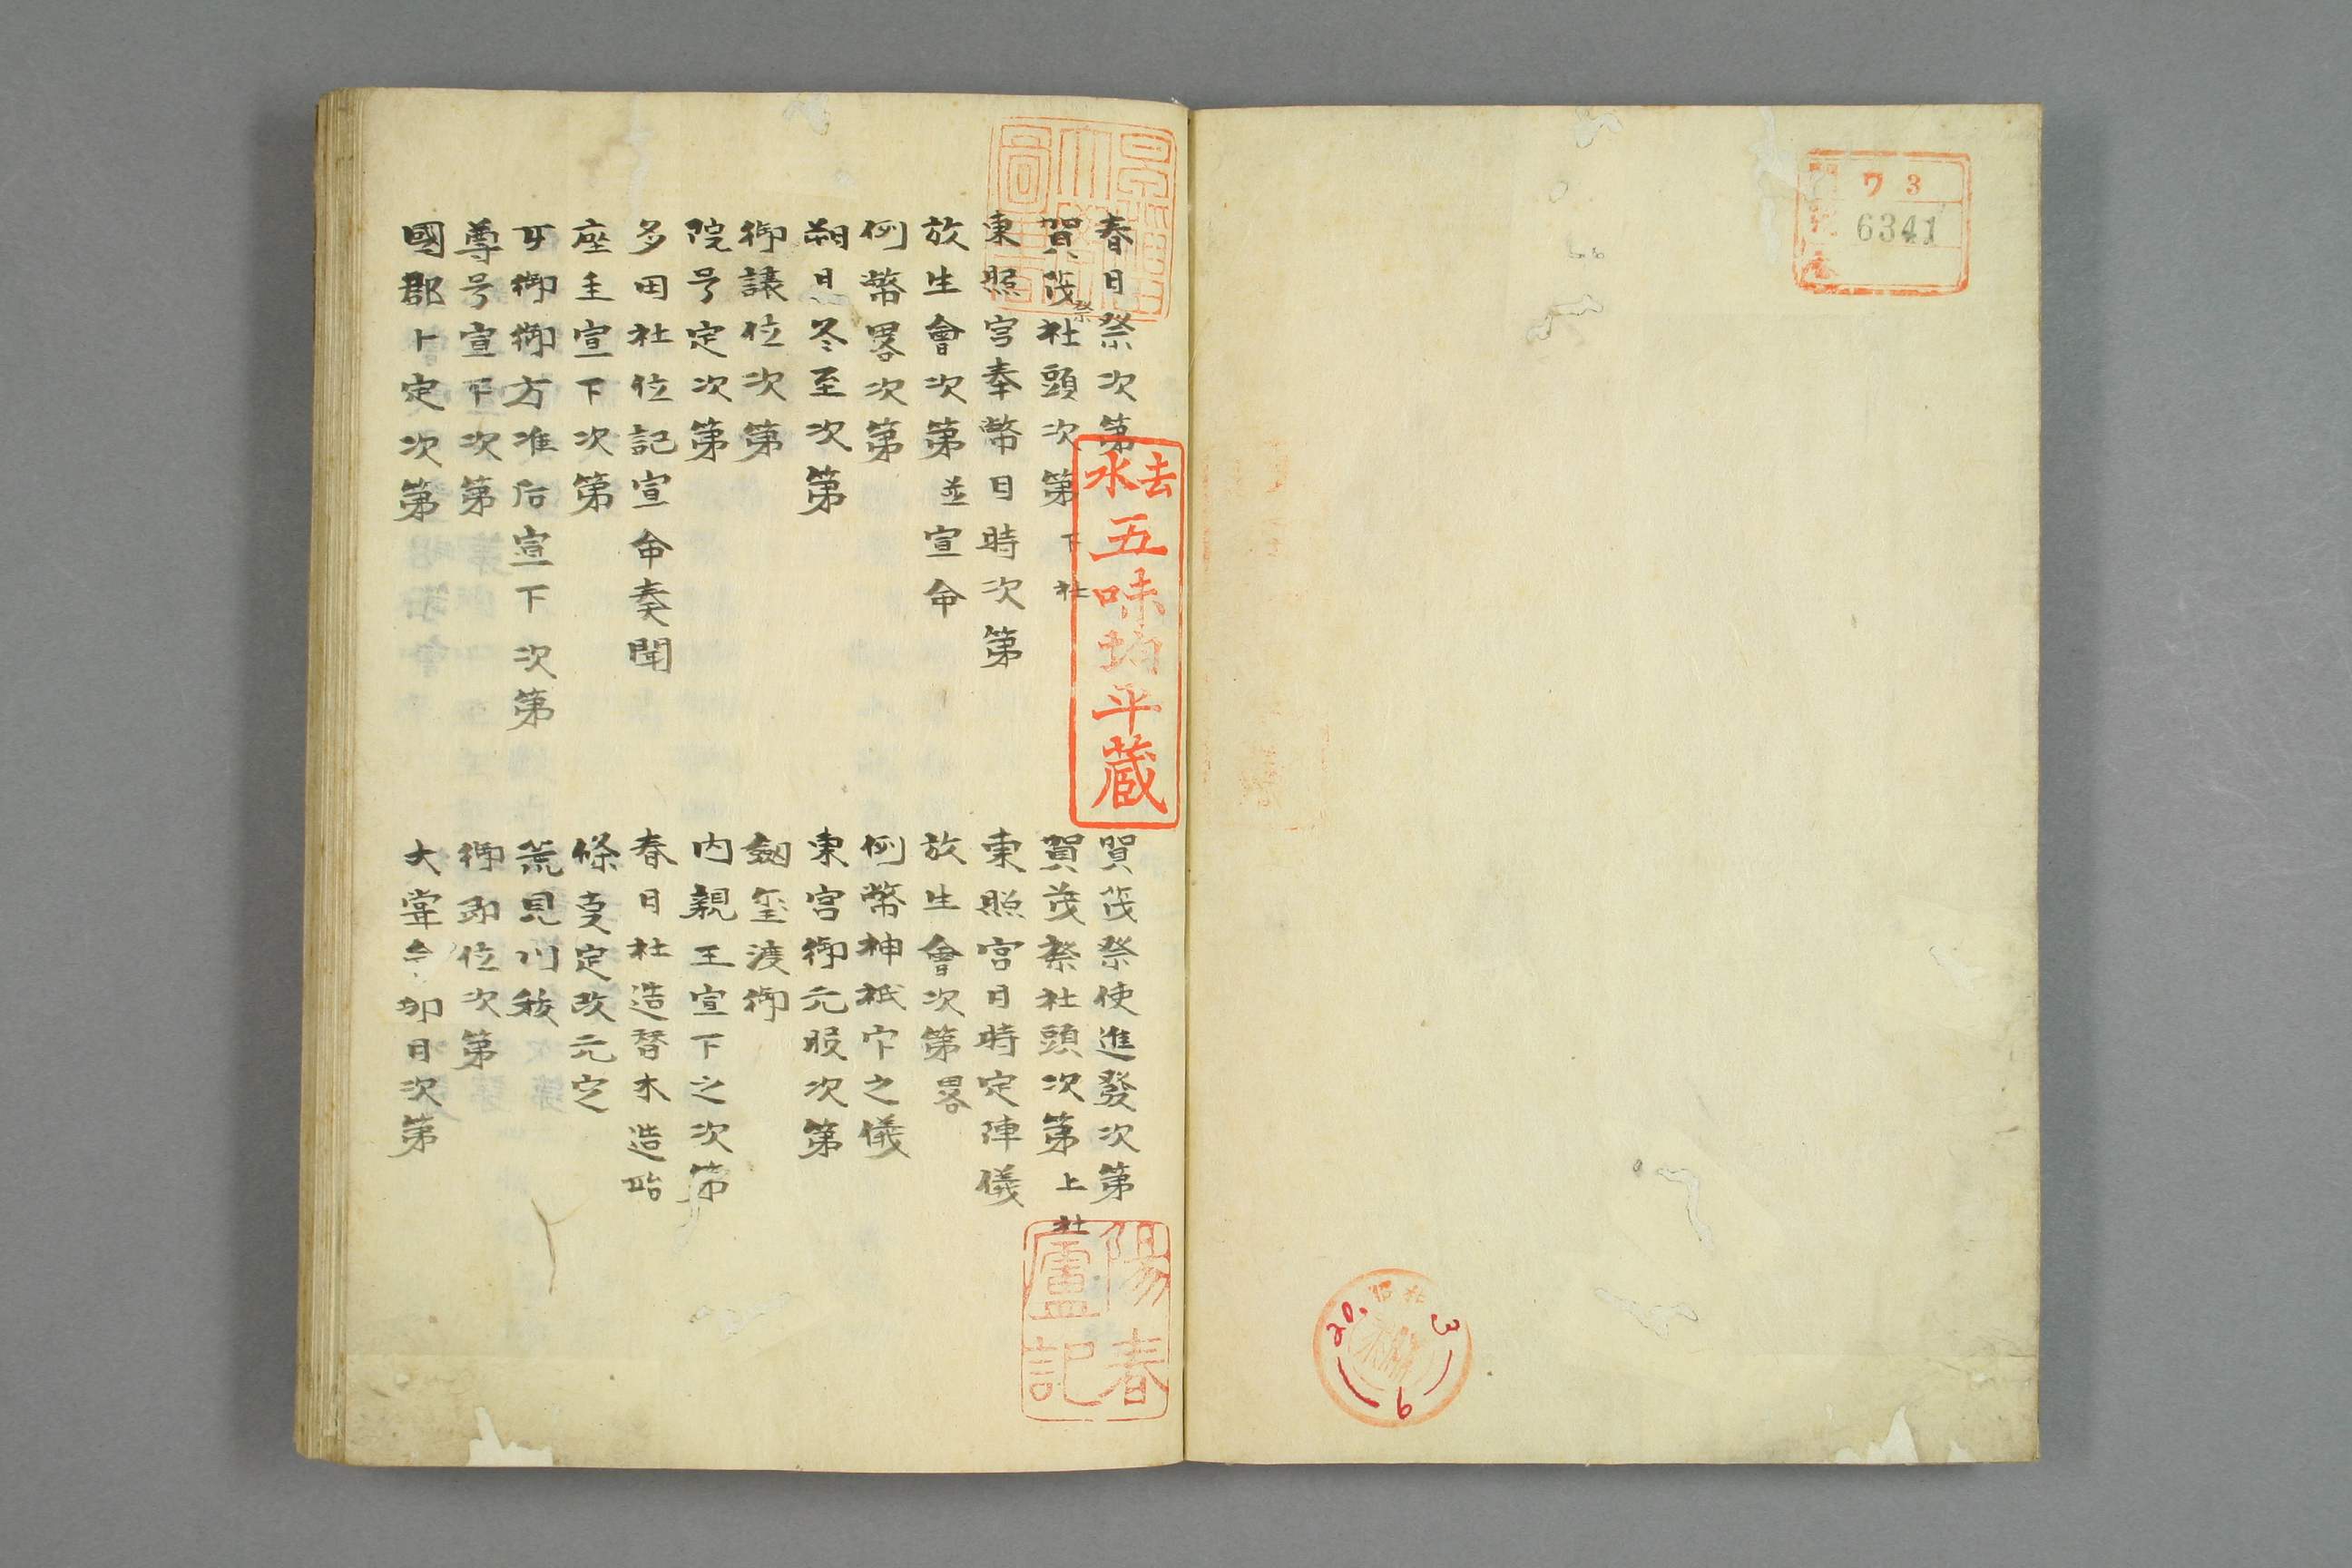 ワ 3
6341
20. 3 9
春日祭次第
賀茂祭社頭次第 下社
東照宮奉幣日時次第
放生會次第 並宣命
例幣畧次第
朔日冬至次第
御譲位次第
院号定次第
多田社位記宣命奏聞
座主宣下次第
御方准后宣下次第
尊号宣下次第
國郡卜定次第
賀茂祭使進發次第
賀茂祭社頭次第 上社
東照宮日時定陣儀
放生會次第 畧
例幣神祇之儀
東宮御元服次第
劔璽渡御
内親王宣下之次第
春日社造替木造始
條定改元定
荒見川秡
御即位次第
大甞會卯日次第
去水
五味均平蔵
陽春
廬記